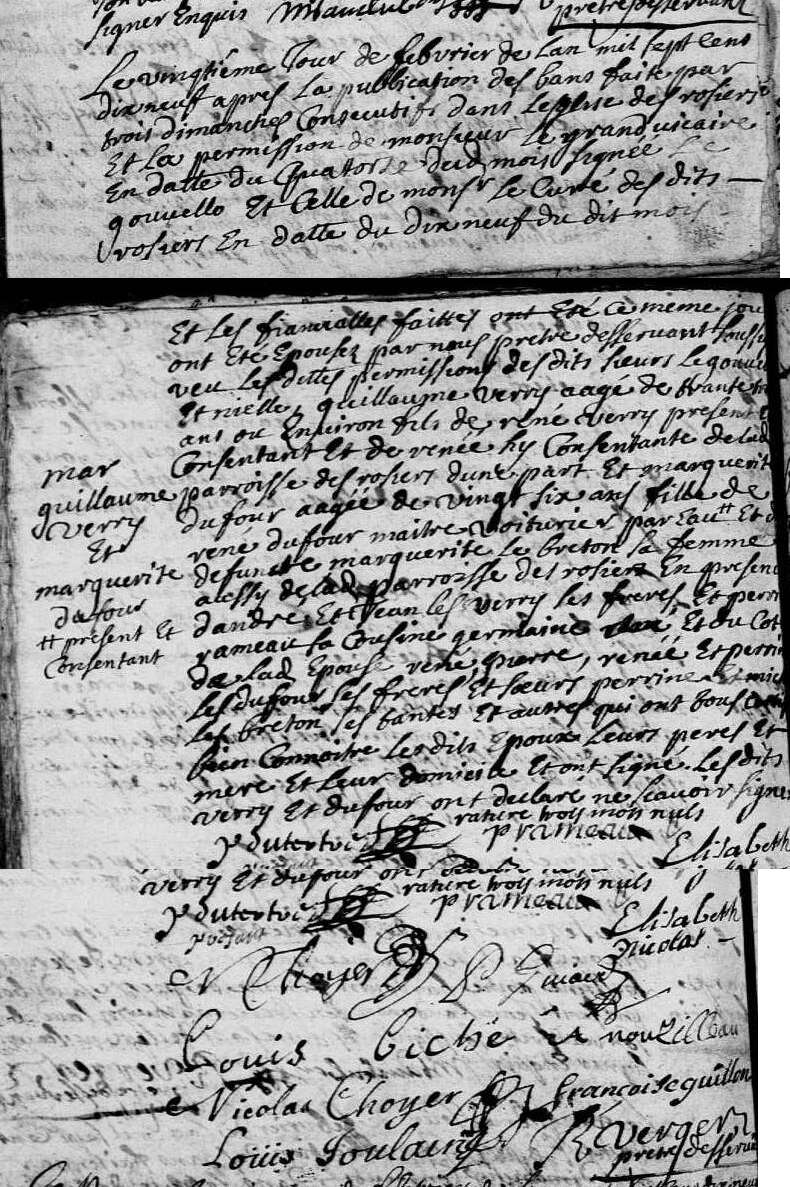 signer Enquis
prêtre desservant
Le vingtième Jour de febvrier de Lan mil sept cens
dix neuf apres La publication des bans faite par
trois dimanches Consecutifs dans Leglise des rosiers
Et La permission de monsieur Le grand vicaire
En datte du Quatorze dud mois signée Le
gouvello Et Celle de monsr Le Curé des dits
rosiers En datte du dix neuf du dit mois
Et Les fiancialles faittes ont Eté Ce même jou
ont Eté Epousez par nous prêtre desservant soussi
veu Les dittes permissions des dits sieurs Le gouve
Et nielle, guillaume verry aagé de trante
ans ou Environ fils de rené verry present
Consentant Et de renée Consentante de lad
parroisse des rosiers dune part Et marguerit
dufour aagée de vingt six ans fille de
rené dufour maitre voiturier par Eau ++ Et d
defuncte marguerite Le breton sa femme
aussy de lad parroisse des rosiers En presen
dandré Et Jean les verry ses freres Et perri
rameau sa Cousine germaine Et du Cot
de lad Epouse rené, pierre, renée Et perrin
Les dufour ses freres Et sœurs perrine Et
Les breton ses tantes Et autres qui ont tous
bien Connoitre lesdits Epoux Leurs peres Et
mere Et Leur domicile Et ont signé Les dits
verry Et dufour ont declaré ne scavoir signer
rature trois mots nuls
mar
guillaume
verry
Et
marguerite
dufour
++ present Et
Consentant
P dutertre
p rameau
Elisabeth
verry Et dufour ont
rature trois mots nuls
P dutertre
p rameau
Elisabeth
Nicolas
N Choyer
Louis biché
nouzilleau
Nicolas Choyer
francoise guillon
Louis Toulain
R Verger
prêtre desserva